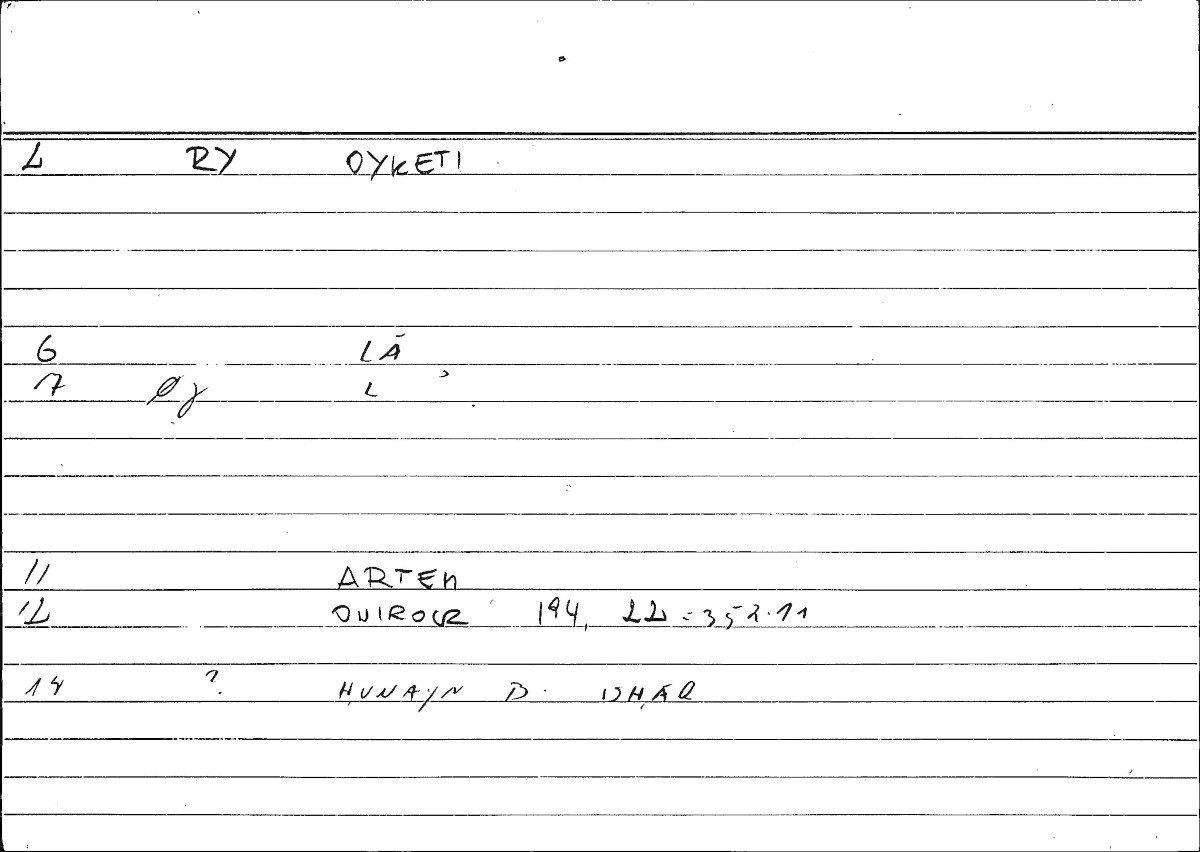 2 RY OYKETI
6 LĀ
7 Øy L ʾ
11 ARTEM
12 ONIROCR 194, 22 = 352.11
14 ? ḤUNAYN B. ISḤĀQ